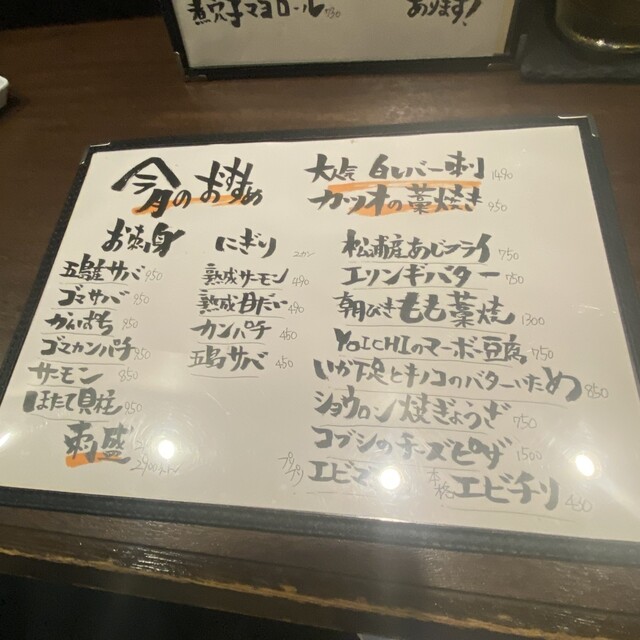 煮穴子マヨロール 780
あります!
今月のおすすめ
大人気 白レバー刺 1490
カツオの藁焼き 950
お刺身
五島産サバ 950
ゴマサバ 950
かんぱち 850
ゴマカンパチ 850
サーモン 850
ほたて貝柱 850
刺盛
にぎり 2カン
熟成サーモン 490
熟成甘だい 490
カンパチ 450
五島サバ 450
松浦産あじフライ 750
エリンギバター 750
朝びきもも藁焼 1300
YOICHIのマーボー豆腐 750
いか下足とキノコのバターいため 850
ショウロン焼ぎょうざ 750
コブシのチーズピザ 1500
プリプリ エビマヨ
本格 エビチリ